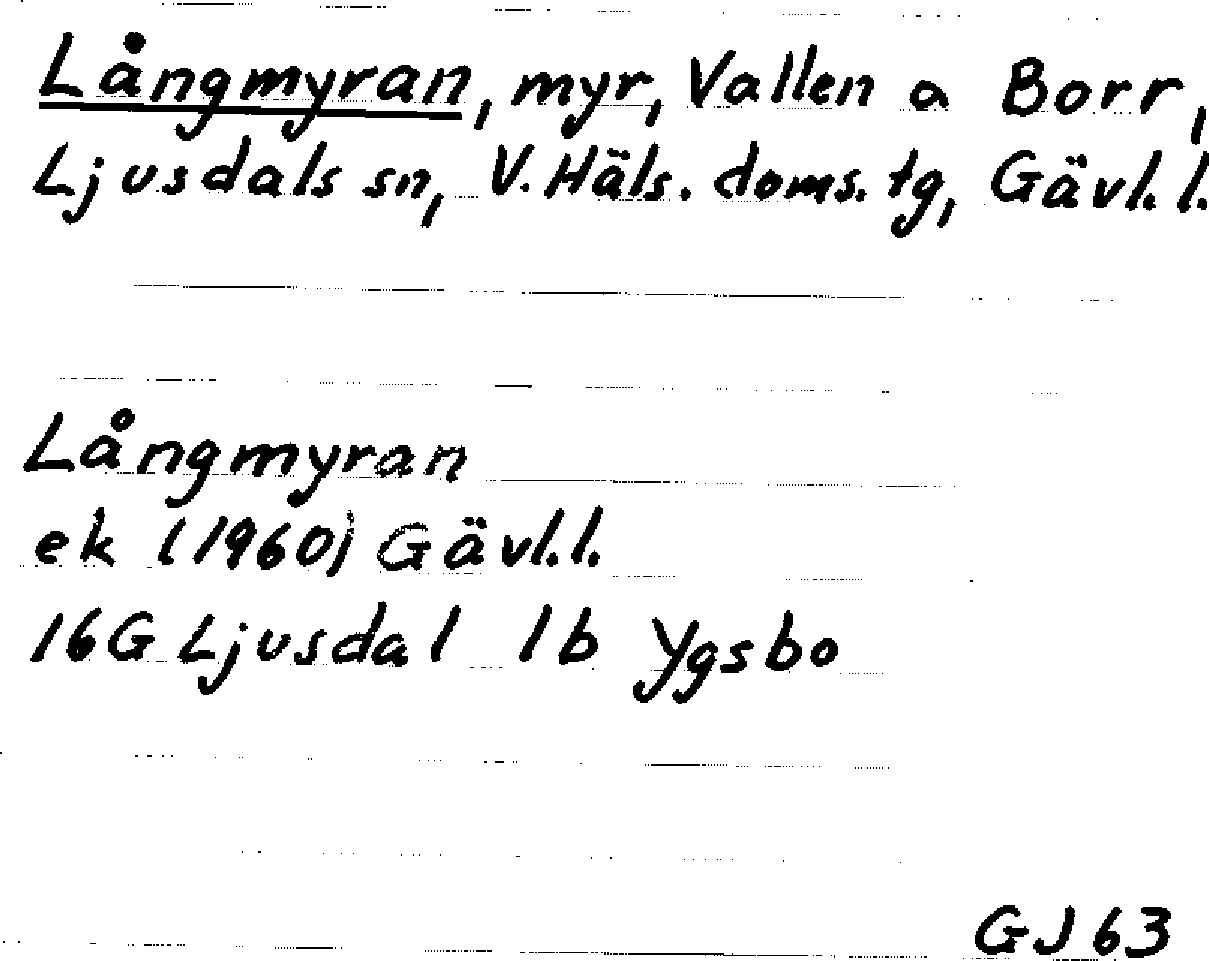 Långmyran, myr, Vallen a Borr,
Ljusdals sn, V. Häls. doms. tg, Gävl. l.
Långmyran
ek (1960) Gävl. l.
16G Ljusdal 1b Ygsbo
GJ 63